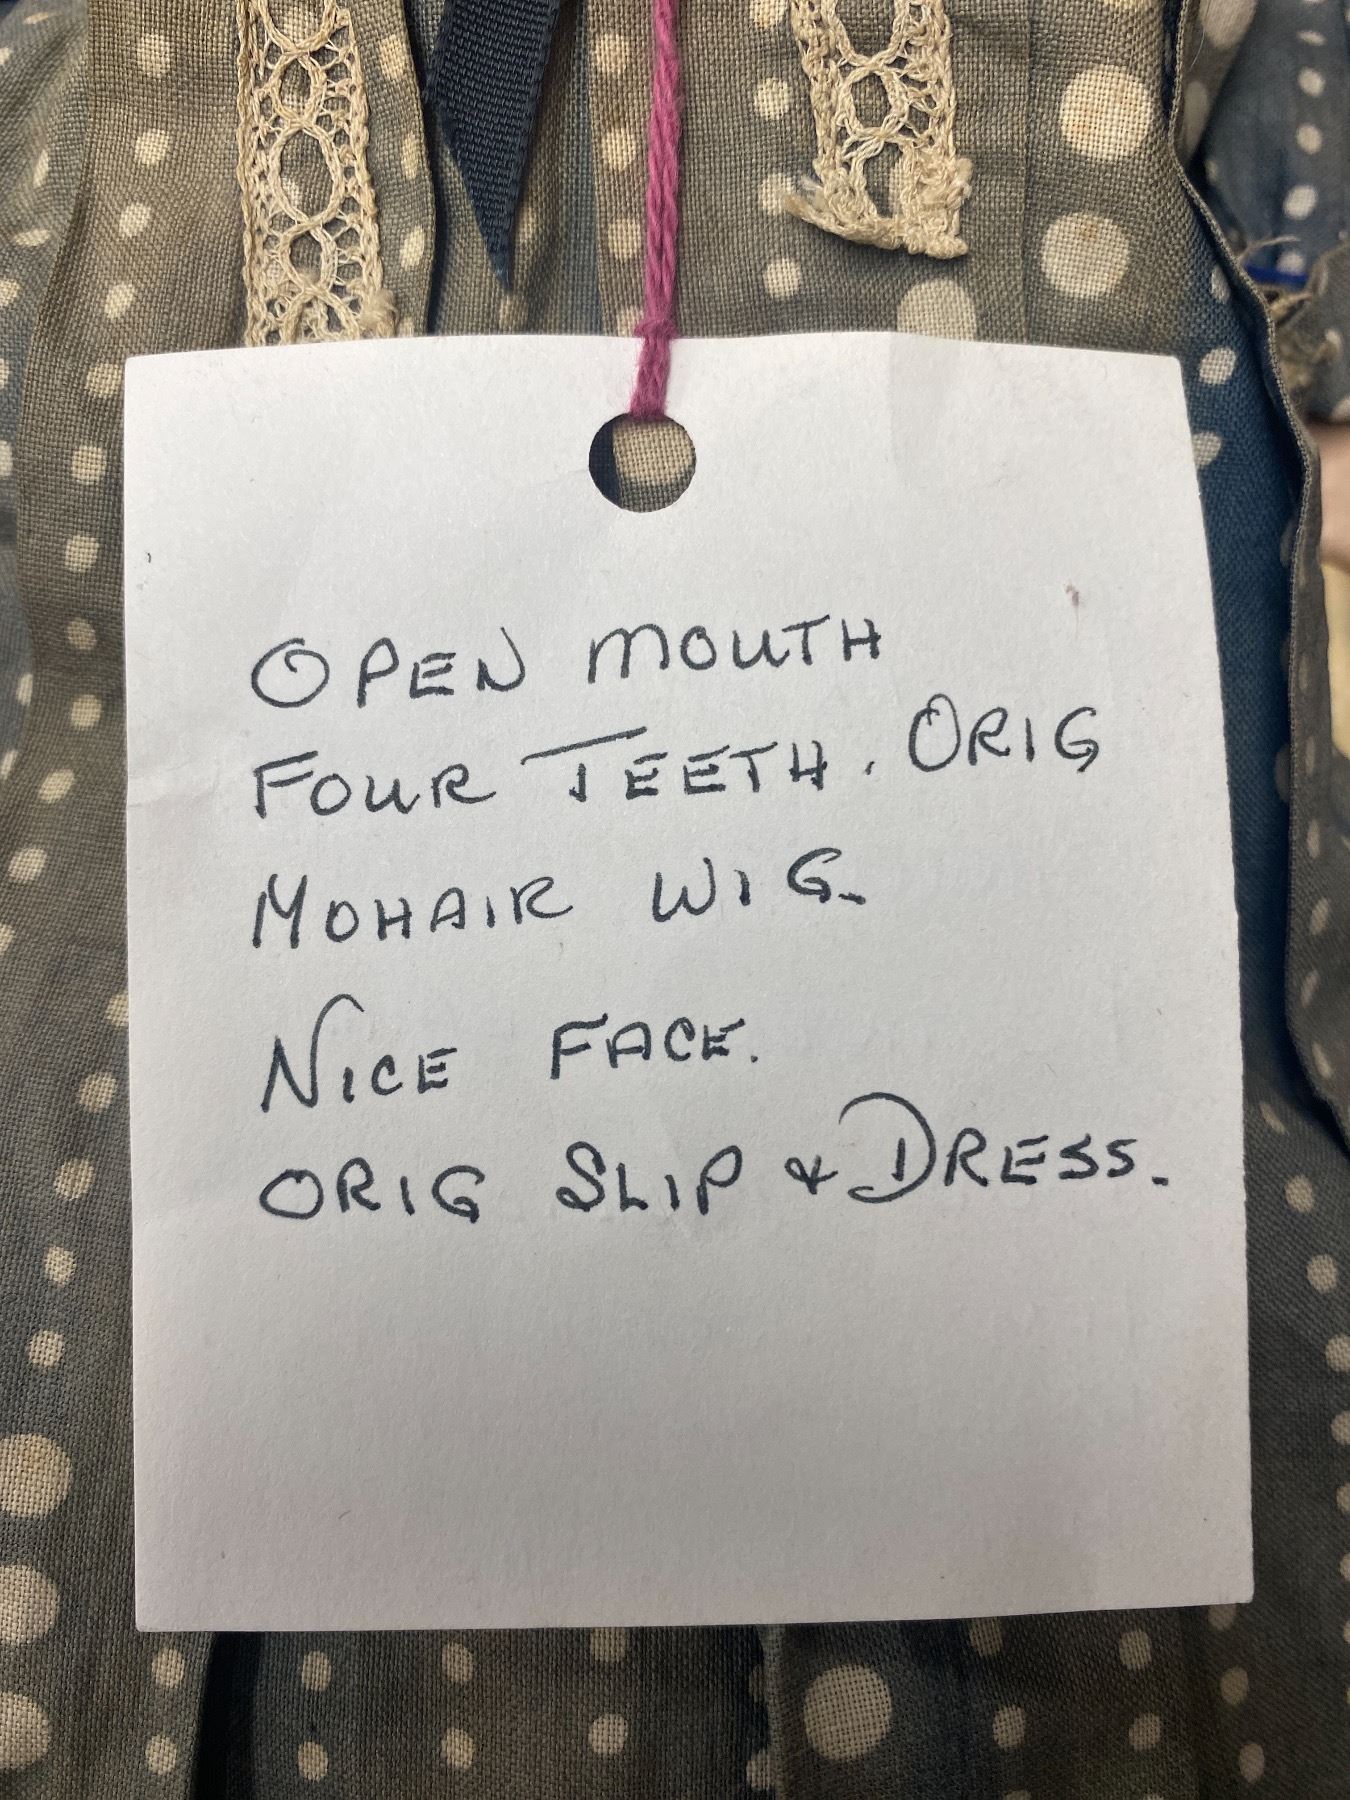 OPEN MOUTH
FOUR TEETH. ORIG
MOHAIR WIG.
NICE FACE.
ORIG SLIP & DRESS.